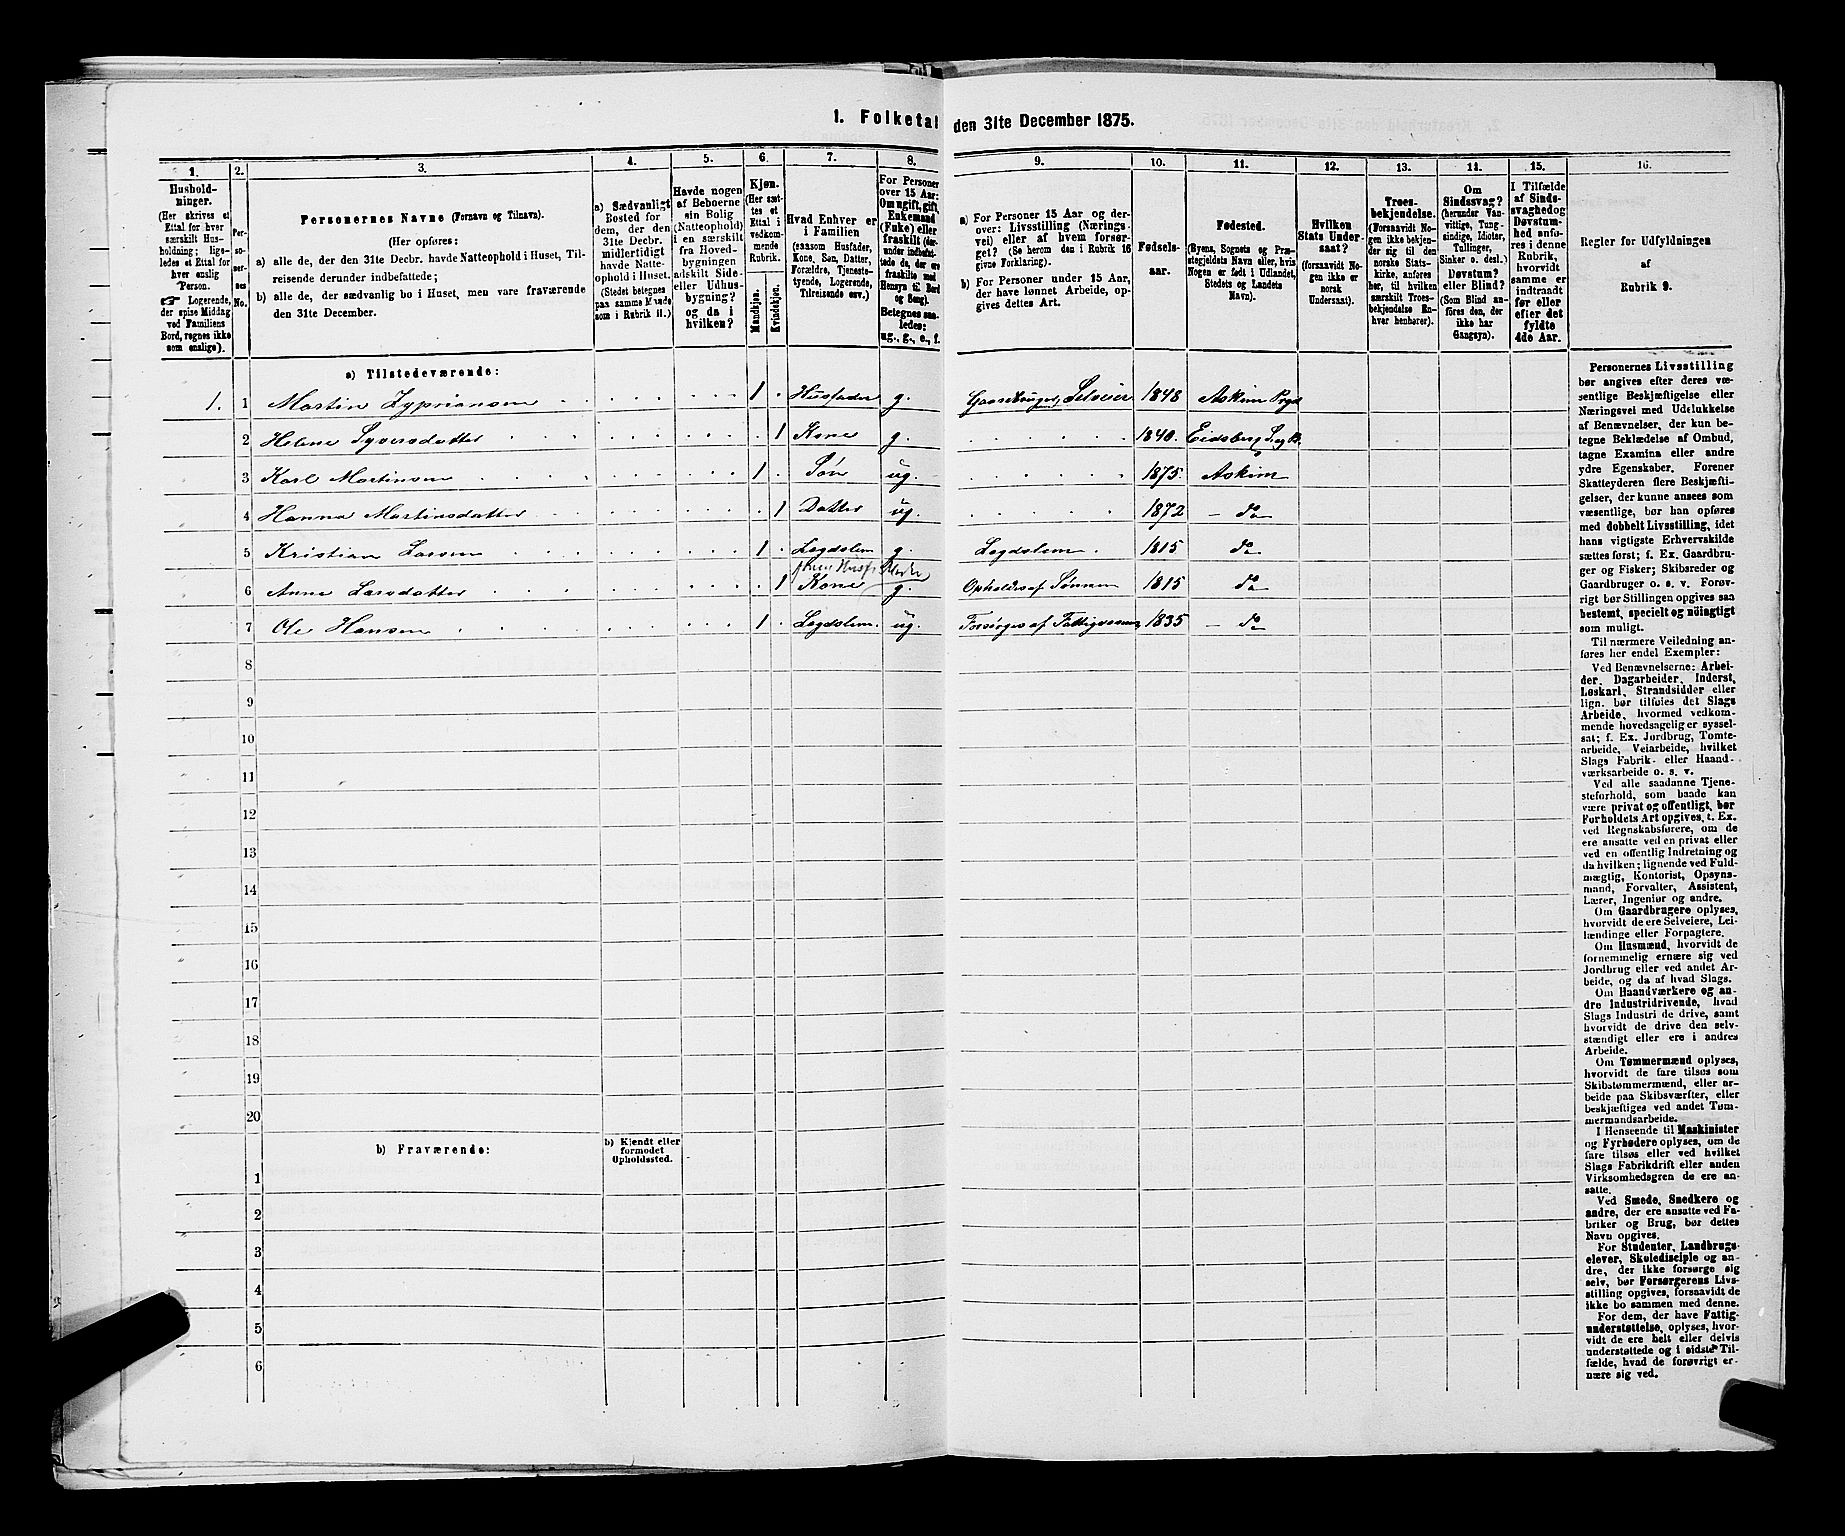 1. Folketal den 31te December 1875.
1.
Hushold-
ninger.
(Her skrives et
Ettal for hver
særskilt Hus-
holdning; lige-
ledes et Ettal for
hver enslig
Person.
Logerende,
der spise Middag
ved Familiens
Bord, regnes ikke
som enslige).
2.
Per-
so-
ner-
nes
No.
3.
Personernes Navne (Fornavn og Tilnavn).
(Her opføres:
a) alle de, der den 31te Decbr. havde Natteophold i Huset, Til-
reisende derunder indbefattede;
b) alle de, der sædvanlig bo i Huset, men vare fraværende
den 31te December.
4.
a) Sædvanligt
Bosted for
dem, der den
31te Decbr.
midlertidigt
havde Natte-
ophold i Huset.
(Stedet betegnes
paa samme Maade
som i Rubrik 11.)
5.
Havde nogen
af Beboerne
sin Bolig
(Natteophold)
i en særskilt
fra Hoved-
bygningen
adskilt Side-
eller Udhus-
bygning?
og da i
hvilken?
6.
Kjøn.
(Her sæt-
tes et
Ettal i
vedkom-
mende
Rubrik.
Mandkjøn.
Kvindekjøn.
7.
Hvad Enhver er
i Familien
(saasom Husfader,
Kone, Søn, Datter,
Forældre, Tjeneste-
tyende, Logerende,
Tilreisende osv.)
8.
For Personer
over 15 Aar:
Om ugift, gift,
Enkemand
(Enke) eller
fraskilt (der-
under indbefat-
tede de, der ere
fraskilte med
Hensyn til Bord
og Seng).
Betegnes saa-
ledes:
ug., g., e., f.
9.
a) For Personer 15 Aar og der-
over: Livsstilling (Nærings-
vei) eller af hvem forsør-
get? (Se herom des i Rubrik 16
givne Forklaring).
b) For Personer under 15 Aar,
der have lønnet Arbeide, op-
gives dettes Art.
10.
Fødsels-
aar.
11.
Fødested.
(Byens, Sognets og Præ-
stegjeldets Navn eller, hvis
Nogen er født i Udlandet,
Stedets og Landets
Navn).
12.
Hvilken
Stats Under-
saat?
(forsaavidt No-
gen ikke er
norsk
Undersaat).
13.
Troes-
bekjendelse.
(Forsaavidt No-
gen ikke bekjen-
der sig til den
norske Stats-
kirke, anføres
her, til hvilken
særskilt Troes-
bekjendelse En-
hver henhører).
14.
Om
Sindssvag?
(herunder Van-
vittige, Tung-
sindige, Idioter,
Tullinger,
Sinker o. desl.)
Døvstum?
eller Blind?
(Som Blind an-
føres den, der
ikke har
Gangsyn).
15.
I Tilfælde
af Sinds-
svaghed og
Døvstum-
hed anfø-
res i denne
Rubrik,
hvorvidt
samme er
indtraadt
før eller
efter det
fyldte
4de Aar.
16.
Regler for Udfyldningen
af
Rubrik 9.
a) Tilstedeværende:
1. 1 Martin Zypriansen 1 Husfader g. Gaardbruger, Selveier 1848 Askim Prgd
2 Helene Syversdatter 1 Kone g. 1840. Eidsberg
3 Karl Martinsen 1 Søn ug. 1875. Askim
4 Hanna Martinsdatter 1 Datter ug. 1872 — do
5 Kristian Larsen 1 Lægdslem g. Lægdslem. 1815 do
6 Anne Larsdatter 1 Kone g. Opholdes af Sønnen 1815 do
7 Ole Hansen 1 Lægdslem. ug. Forsørges af Fattigvesenet 1835 — do
8
9
10
11
12
13
14
15
16
17
18
19
20
b) Fraværende:
b) Kjendt eller
formodet
Opholdssted.
1
2
3
4
5
6
Personernes Livsstilling
bør angives efter deres væ-
sentlige Beskjæftigelse eller
Næringsvei med Udelukkelse
af Benævnelser, der kun be-
tegne Beklædelse af Ombud,
tagne Examina eller andre
ydre Egenskaber. Forener
Skatteyderen flere Beskjæfti-
gelser, der kunne ansees som
væsentlige, bør han opføres
med dobbelt Livsstilling, idet
hans vigtigste Erhvervskilde
sættes først; f. Ex. Gaardbru-
ger og Fisker; Skibsreder og
Gaardbruger o. s. v. Forøv-
rigt bør Stillingen opgives saa
bestemt, specielt og nöiagtigt
som muligt.
Til nærmere Veiledning an-
føres her endel Exempler:
Ved Benævnelserne: Arbei-
der, Dagarbeider, Inderst,
Løskarl, Strandsidder eller
lign. bør tilføies det Slags
Arbeide, hvormed vedkom-
mende hovedsagelig er syssel-
sat; f. Ex. Jordbrug, Tomte-
arbeide, Veiarbeide, hvilket
Slags Fabrik- eller Haand-
værksarbeide o. s. v.
Ved alle saadanne Tjene-
steforhold, som baade kan
være privat og offentligt, bør
Forholdets Art opgives, t. Ex.
ved Regnskabsførere, om de
ere ansatte ved en privat eller
ved en offentlig Indretning og
da hvilken; lignende ved Fuld-
mægtig, Kontorist, Opsyns-
mand, Forvalter, Assistent,
Lærer, Ingeniør og andre.
Om Gaardbrugere oplyses,
hvorvidt de ere Selveiere, Lei-
lændinge eller Forpagtere.
Om Husmænd, hvorvidt de
fornemmelig ernære sig ved
Jordbrug eller ved andet Ar-
beide, og da af hvad Slags.
Om Haandværkere og an-
dre Industridrivende, hvad
Slags Industri de drive, samt
hvorvidt de drive den selv-
stændigt eller ere i andres
Arbeide.
Om Tømmermænd oplyses,
hvorvidt de fare tilsøs som
Skibstømmermænd, eller ar-
beide paa Skibsværfter, eller
beskjæftiges ved andet Tøm-
mermandsarbeide.
I Henseende til Maskinister
og Fyrbødere oplyses, om de
fare tilsøs eller ved hvilket
Slags Fabrikdrift eller anden
Virksomhedsgren de ere an-
satte.
Ved Smede, Snedkere og
andre, der ere ansatte ved Fa-
briker og Brug, bør dettes
Navn opgives.
For Studenter, Landbrugs-
elever, Skoledisciple og an-
dre, der ikke forsørge sig
selv, bør Forsørgerens Livs-
stilling opgives, forsaavidt de
ikke bo sammen med denne.
For dem, der have Fattig-
understøttelse, oplyses, hvor-
vidt de ere helt eller delvis
understøttede og i sidste Til-
fælde, hvad de forøvrigt er-
nære sig ved.